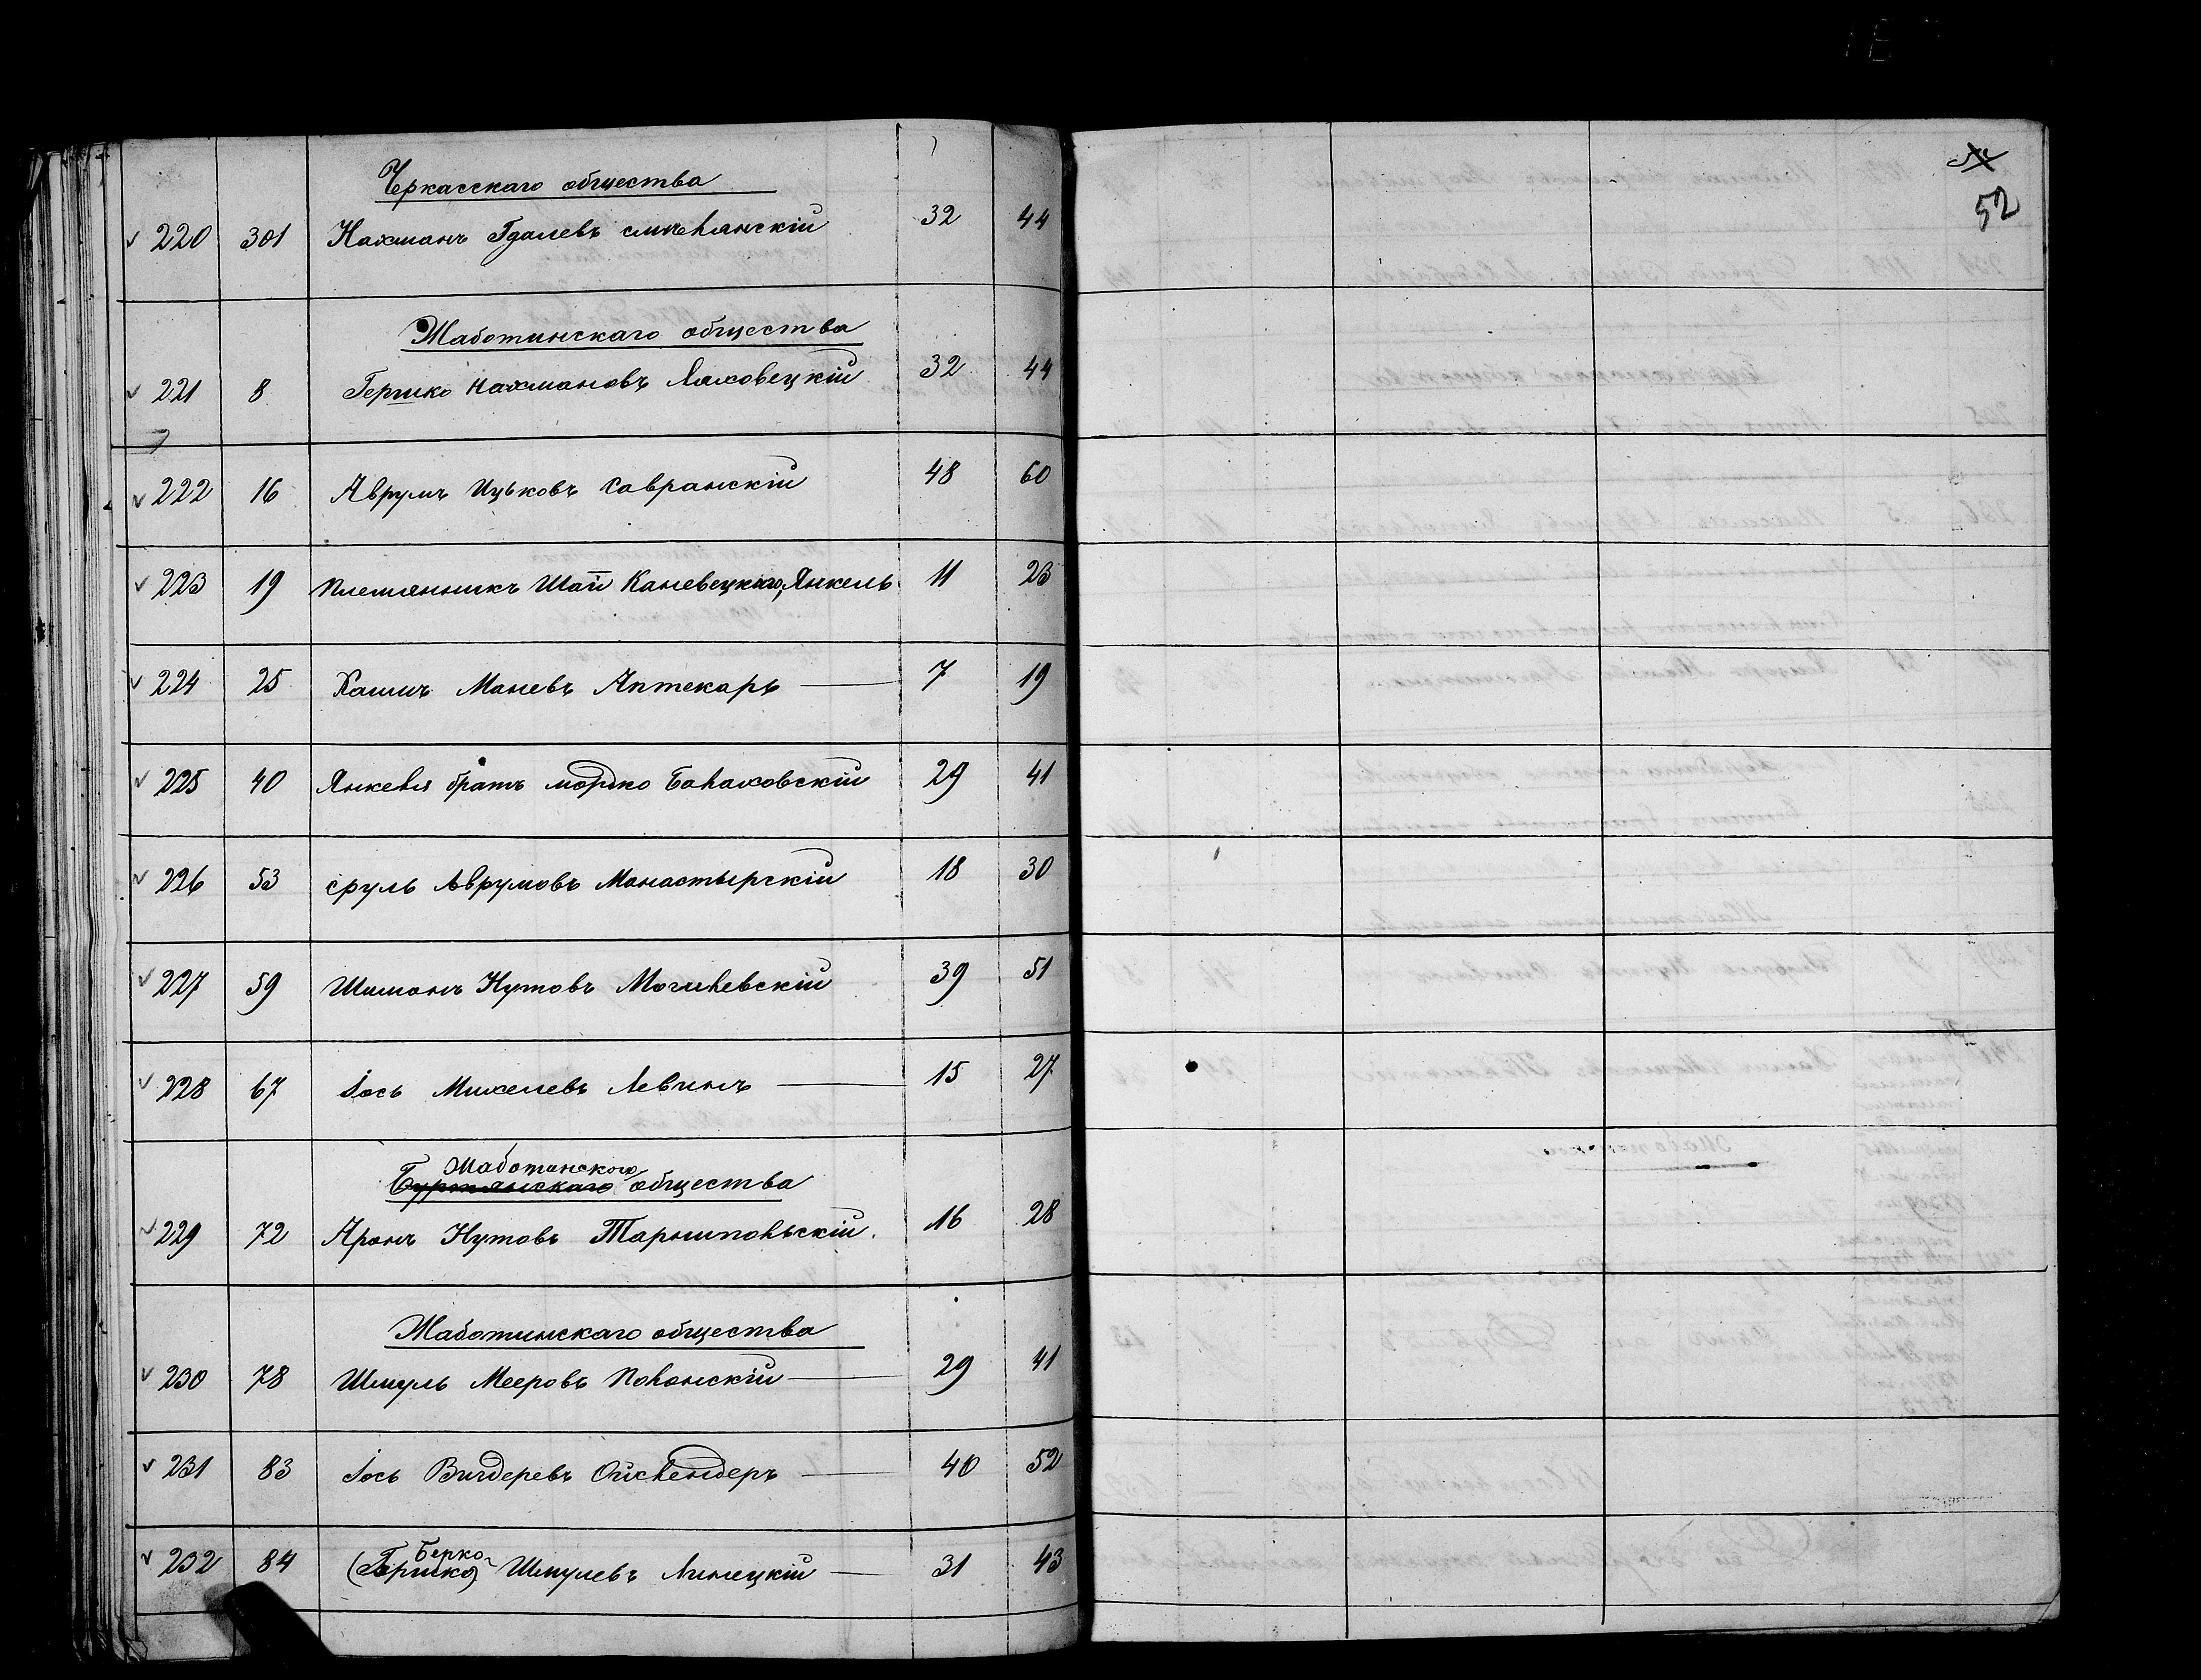 Черкасскаго общества
220 301 Нахманъ Гдалевъ Смѣлянскій 32 44
Жаботинскаго общества
221 8 Гершко Нахмановъ Ляховецкій 32 44
222 16 Аврумъ Ицьковъ Савранскій 48 60
223 19 Племянникъ Шаи Каневецкаго, Янкель 11 23
224 25 Хаимъ Маневъ Аптекарь 7 19
225 40 Янкеля братъ Мордко Балаховскій 29 41
226 53 Сруль Аврумовъ Манастырскій 18 30
227 59 Шимонъ Нутовъ Могилевскій 39 51
228 67 Іось Михелевъ Левинъ 15 27
Жаботинскаго
Буртянскаго общества
229 72 Аронъ Нутовъ Тарнипольскій. 16 28
Жаботинскаго общества
230 78 Шмуль Мееровъ Полонскій 29 41
231 83 Іось Вигдеревъ Ойслендеръ 40 52
Берко
232 84 (Гершко) Шмулевъ Линецкій 31 43
52